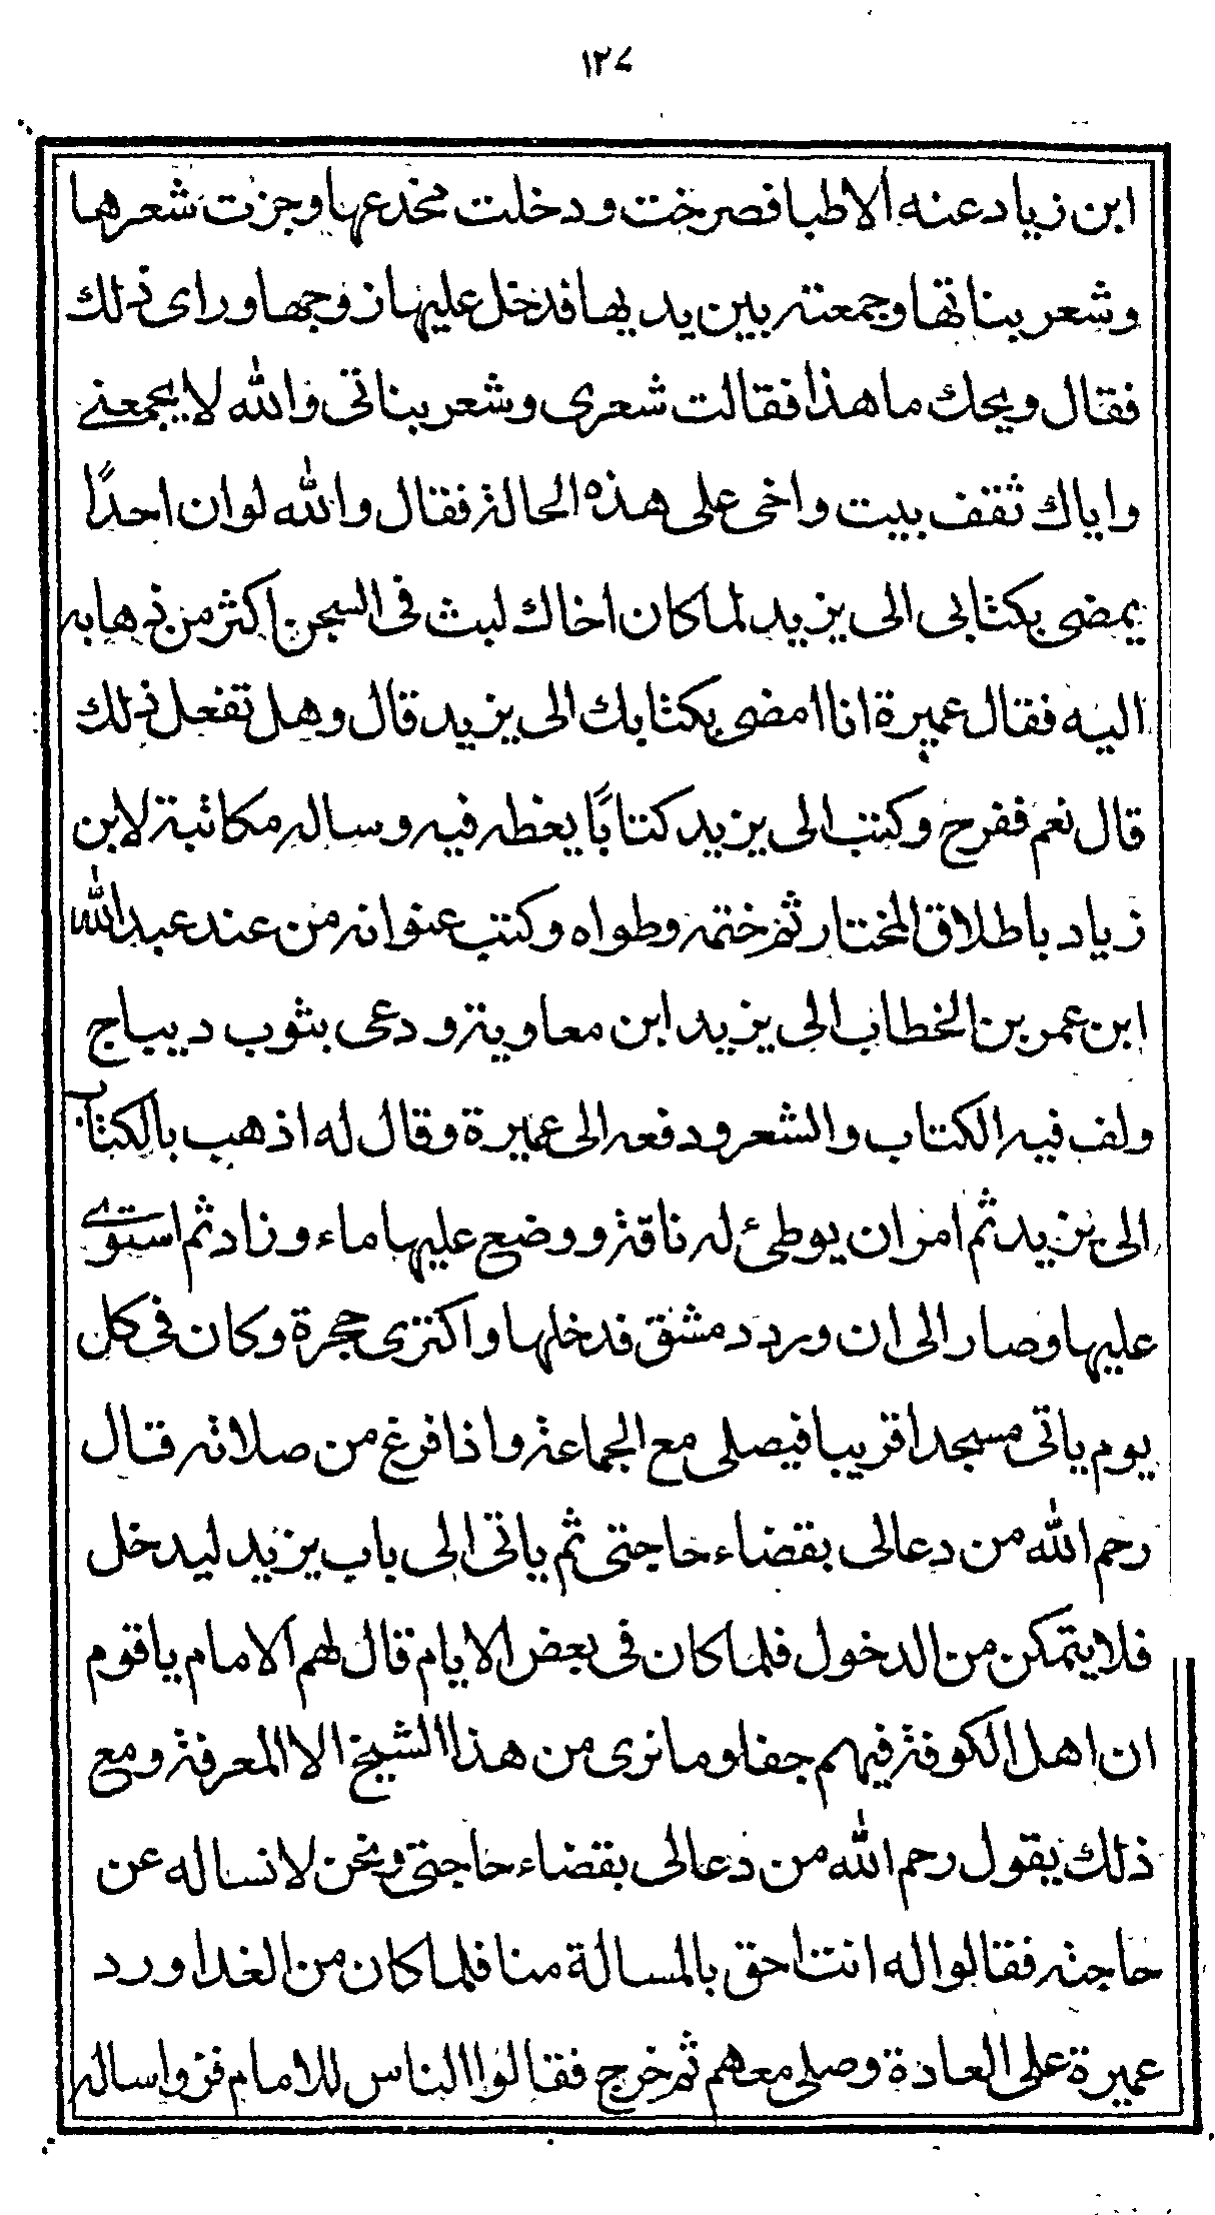 ١٢٧
ابن زياد عنه الاطبا فصرخت ودخلت مخدعها وجزت شعرها
وشعر بناتها وجمعته بين يديها فدخل عليها زوجها وراى ذلك
فقال ويحك ما هذا فقالت شعري وشعر بناتى والله لا يجمعني
واياك ثقف بيت واخى على هذه الحالة فقال والله لو ان احدًا
يمضى بكتابى الى يزيد لما كان اخاك لبث فى السجن اكثر من ذهابه
اليه فقال عميرة انا امضى بكتابك الى يزيد قال وهل تفعل ذلك
قال نعم ففرح وكتب الى يزيد كتابًا يغظه فيه وساله مكاتبة لابن
زياد باطلاق المختار ثم ختمه وطواه وكتب عنوانه من عند عبد الله
ابن عمر بن الخطاب الى يزيد ابن معاوية ودعى بثوب ديباج
ولف فيه الكتاب والشعر ودفعه الى عميرة وقال له اذهب بالكتاب
الى يزيد ثم امر ان يوطئ له ناقة ووضع عليها ماء وزاد ثم استوى
عليها وصار الى ان ورد دمشق فدخلها واكترى حجرة وكان فى كل
يوم ياتى مسجدا قريبا فيصلى مع الجماعة واذا فرغ من صلاته قال
رحم الله من دعا لى بقضاء حاجتى ثم ياتى الى باب يزيد ليدخل
فلا يتمكن من الدخول فلما كان فى بعض الايام قال لهم الامام يا قوم
ان اهل الكوفة فيهم جفا وما نرى من هذا الشيخ الا المعرفة ومع
ذلك يقول رحم الله من دعا لى بقضاء حاجتى ونحن لا نساله عن
حاجته فقالوا له انت احق بالمسالة منا فلما كان من الغد اورد
عميرة على العادة وصلى معهم ثم خرج فقالوا الناس للامام قم واساله